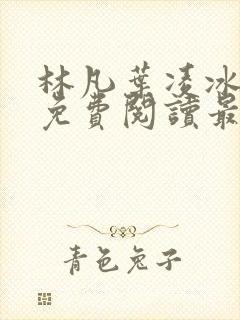 林凡葉凌冰
免費閱讀最
青色兔子